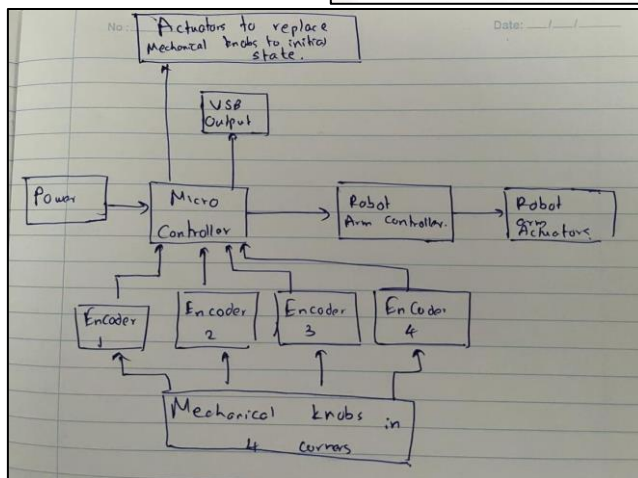 No :
Date: __/__/__
Actuators to replace
Mechanical knobs to initial
state.
USB
Output
Power
Micro
Controller
Robot
Arm Controller.
Robot
arm
Actuators.
Encoder
1
Encoder
2
Encoder
3
Encoder
4
Mechanical knobs in
4 corners